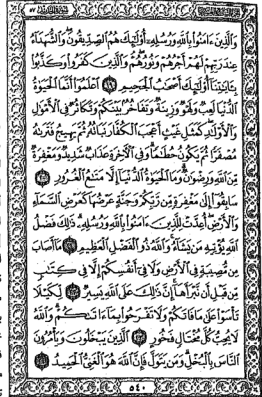 وَالَّذِينَ ءَامَنُوا بِاللَّهِ وَرُسُلِهِ أُولَٰئِكَ هُمُ الصِّدِّيقُونَ وَالشُّهَدَاءُ
عِندَ رَبِّهِمْ لَهُمْ أَجْرُهُمْ وَنُورُهُمْ وَالَّذِينَ كَفَرُوا وَكَذَّبُوا
بِـَٔايَاتِنَا أُولَٰئِكَ أَصْحَابُ الْجَحِيمِ ۝١٩ اعْلَمُوا أَنَّمَا الْحَيَوٰةُ
الدُّنْيَا لَعِبٌ وَلَهْوٌ وَزِينَةٌ وَتَفَاخُرٌ بَيْنَكُمْ وَتَكَاثُرٌ فِي الْأَمْوَالِ
وَالْأَوْلَادِ كَمَثَلِ غَيْثٍ أَعْجَبَ الْكُفَّارَ نَبَاتُهُ ثُمَّ يَهِيجُ فَتَرَاهُ
مُصْفَرًّا ثُمَّ يَكُونُ حُطَامًا وَفِي الْآخِرَةِ عَذَابٌ شَدِيدٌ وَمَغْفِرَةٌ
مِّنَ اللَّهِ وَرِضْوَانٌ وَمَا الْحَيَوٰةُ الدُّنْيَا إِلَّا مَتَاعُ الْغُرُورِ ۝٢٠
سَابِقُوا إِلَىٰ مَغْفِرَةٍ مِّن رَّبِّكُمْ وَجَنَّةٍ عَرْضُهَا كَعَرْضِ السَّمَاءِ
وَالْأَرْضِ أُعِدَّتْ لِلَّذِينَ ءَامَنُوا بِاللَّهِ وَرُسُلِهِ ذَٰلِكَ فَضْلُ
اللَّهِ يُؤْتِيهِ مَن يَشَاءُ وَاللَّهُ ذُو الْفَضْلِ الْعَظِيمِ ۝٢١ مَا أَصَابَ
مِن مُّصِيبَةٍ فِي الْأَرْضِ وَلَا فِي أَنفُسِكُمْ إِلَّا فِي كِتَابٍ
مِّن قَبْلِ أَن نَّبْرَأَهَا إِنَّ ذَٰلِكَ عَلَى اللَّهِ يَسِيرٌ ۝٢٢ لِّكَيْلَا
تَأْسَوْا عَلَىٰ مَا فَاتَكُمْ وَلَا تَفْرَحُوا بِمَا ءَاتَاكُمْ وَاللَّهُ
لَا يُحِبُّ كُلَّ مُخْتَالٍ فَخُورٍ ۝٢٣ الَّذِينَ يَبْخَلُونَ وَيَأْمُرُونَ
النَّاسَ بِالْبُخْلِ وَمَن يَتَوَلَّ فَإِنَّ اللَّهَ هُوَ الْغَنِيُّ الْحَمِيدُ ۝٢٤
٥٤٠